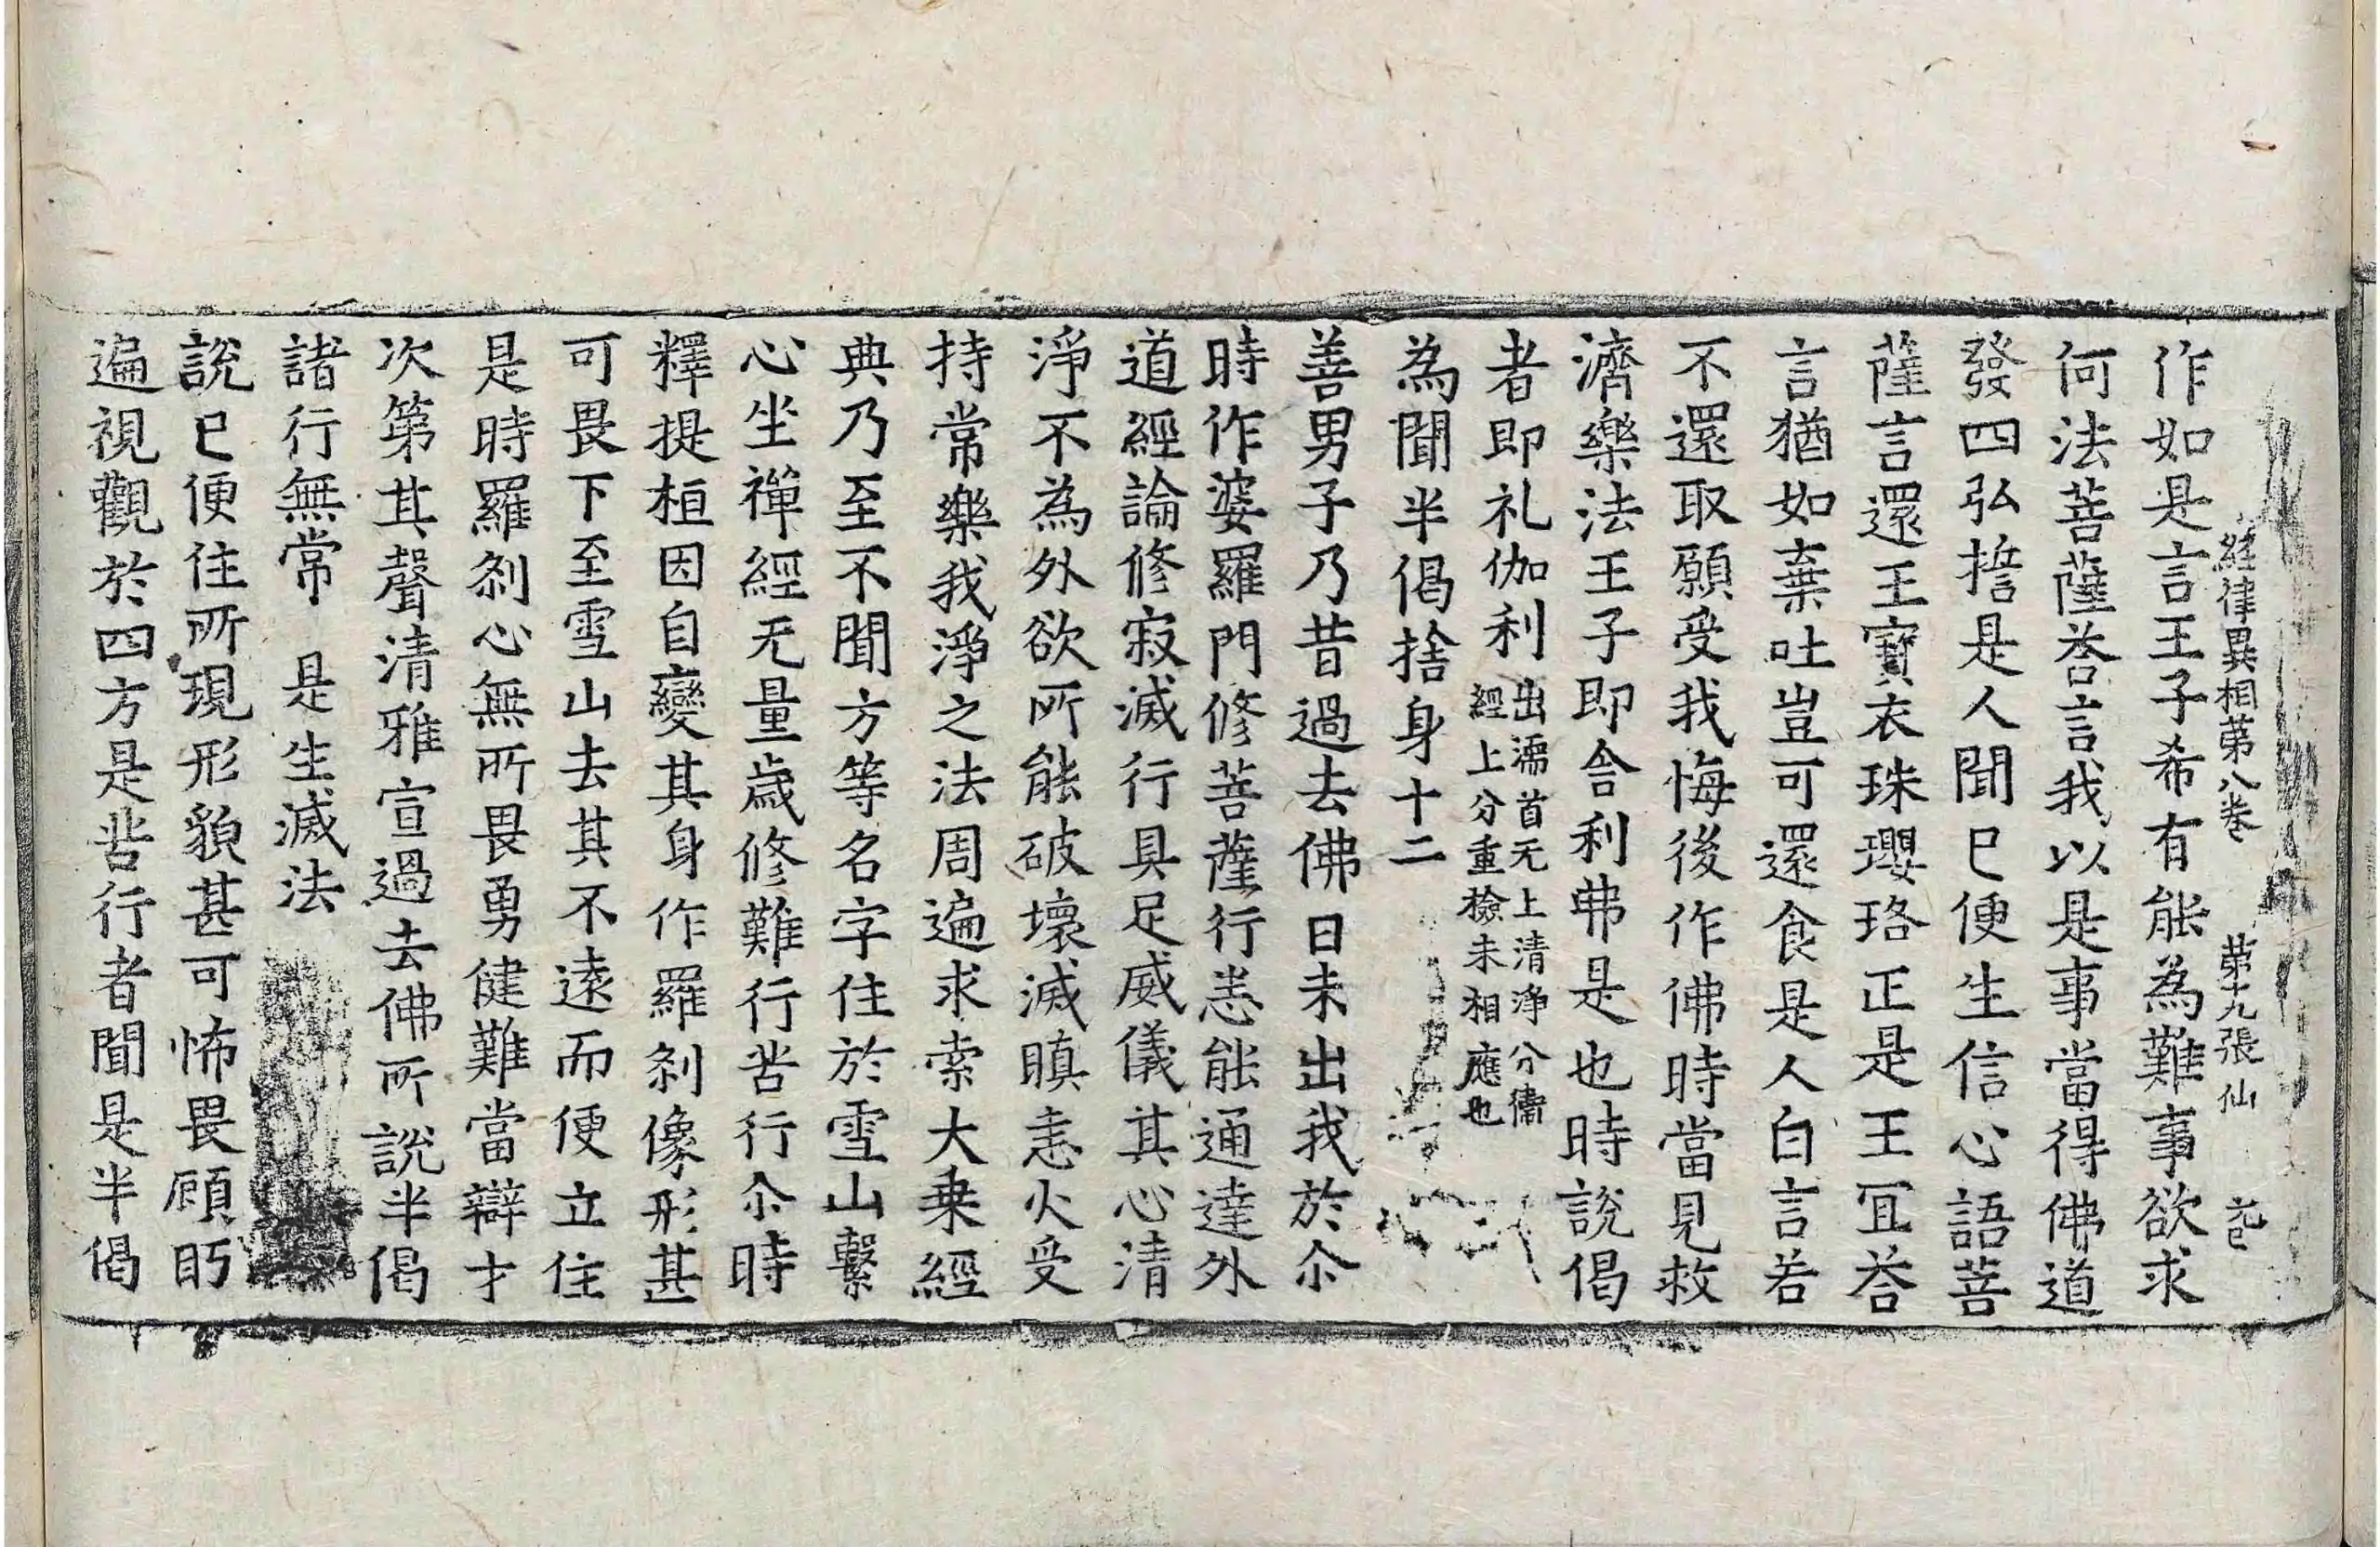 經律異相第八卷 第十九張 仙
作如是言王子希有能為難事欲求
何法菩薩荅言我以是事當得佛道
發四弘誓是人聞已便生信心語菩
薩言還王寶衣珠瓔珞正是王冝荅
言猶如棄吐豈可還食是人白言若
不還取願受我悔後作佛時當見救
濟樂法王子即舍利弗是也時說偈
者即礼伽利出濡首无上清淨分衛
經上分重檢未相應也
為聞半偈捨身十二
善男子乃昔過去佛日未出我於尒
時作婆羅門修菩薩行悉能通達外
道經論修寂滅行具足威儀其心清
淨不為外欲所能破壞滅瞋恚火受
持常樂我淨之法周遍求索大乗經
典乃至不聞方等名字住於雪山繫
心坐禪經无量歲修難行苦行尒時
釋提桓因自變其身作羅剎像形甚
可畏下至雪山去其不遠而便立住
是時羅剎心無所畏勇健難當辯才
次第其聲清雅宣過去佛所說半偈
諸行無常 是生滅法
說已便住所現形貌甚可怖畏顧眄
遍視觀於四方是苦行者聞是半偈